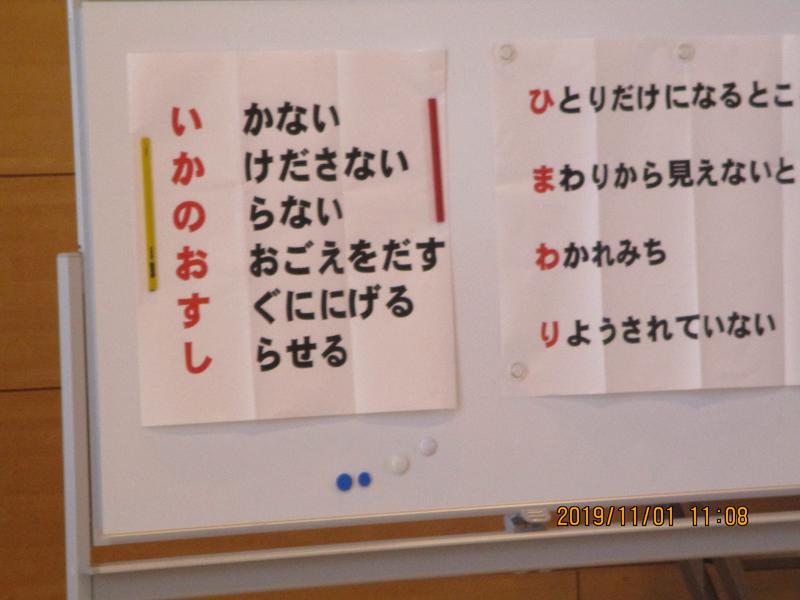 い かない
か けださない
の らない
お おごえをだす
す ぐににげる
し らせる
ひとりだけになるとこ
まわりから見えないと
わかれみち
りようされていない
2019/11/01 11:08